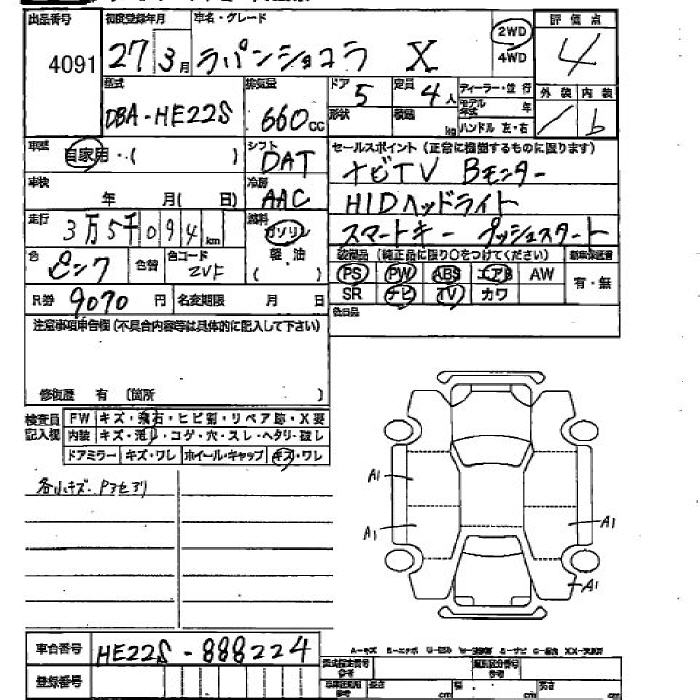 出品番号 初度登録年月 車名・グレード 評価点
4091 27 3月 ラパンショコラ X 2WD 4WD 4
型式 排気量 ドア 5 定員 4人 ディーラー・並行 外装 内装
DBA-HE22S 660cc 形状 積載 kg モデル年式 年 ハンドル 左・右 / b
車歴 自家用・( ) シフト DAT セールスポイント (正常に機能するものに限ります)
ナビTV Bモニター
車検 年 月( 日) 冷房 AAC HIDヘッドライト
走行 3万5千094km 燃料 ガソリン スマートキー プッシュスタート
色 ピンク 色替 色コード ZVF 軽油 ( )
装備品 (純正品に限り○をつけてください) 新車保証書
PS PW ABS エアB AW 有・無
SR ナビ TV カワ
R券 9070円 名変期限 月 日
注意事項申告欄 (不具合内容等は具体的に記入して下さい)
修復歴 有 (箇所 )
検査員記入欄 FW キズ・飛石・ヒビ割・リペア跡・X要
内装 キズ・汚レ・コゲ・穴・スレ・ヘタリ・破レ
ドアミラー キズ・ワレ ホイール・キャップ キズ・ワレ
各小キズ
A1
A1
A1
A1
車台番号 HE22S-888224
登録番号